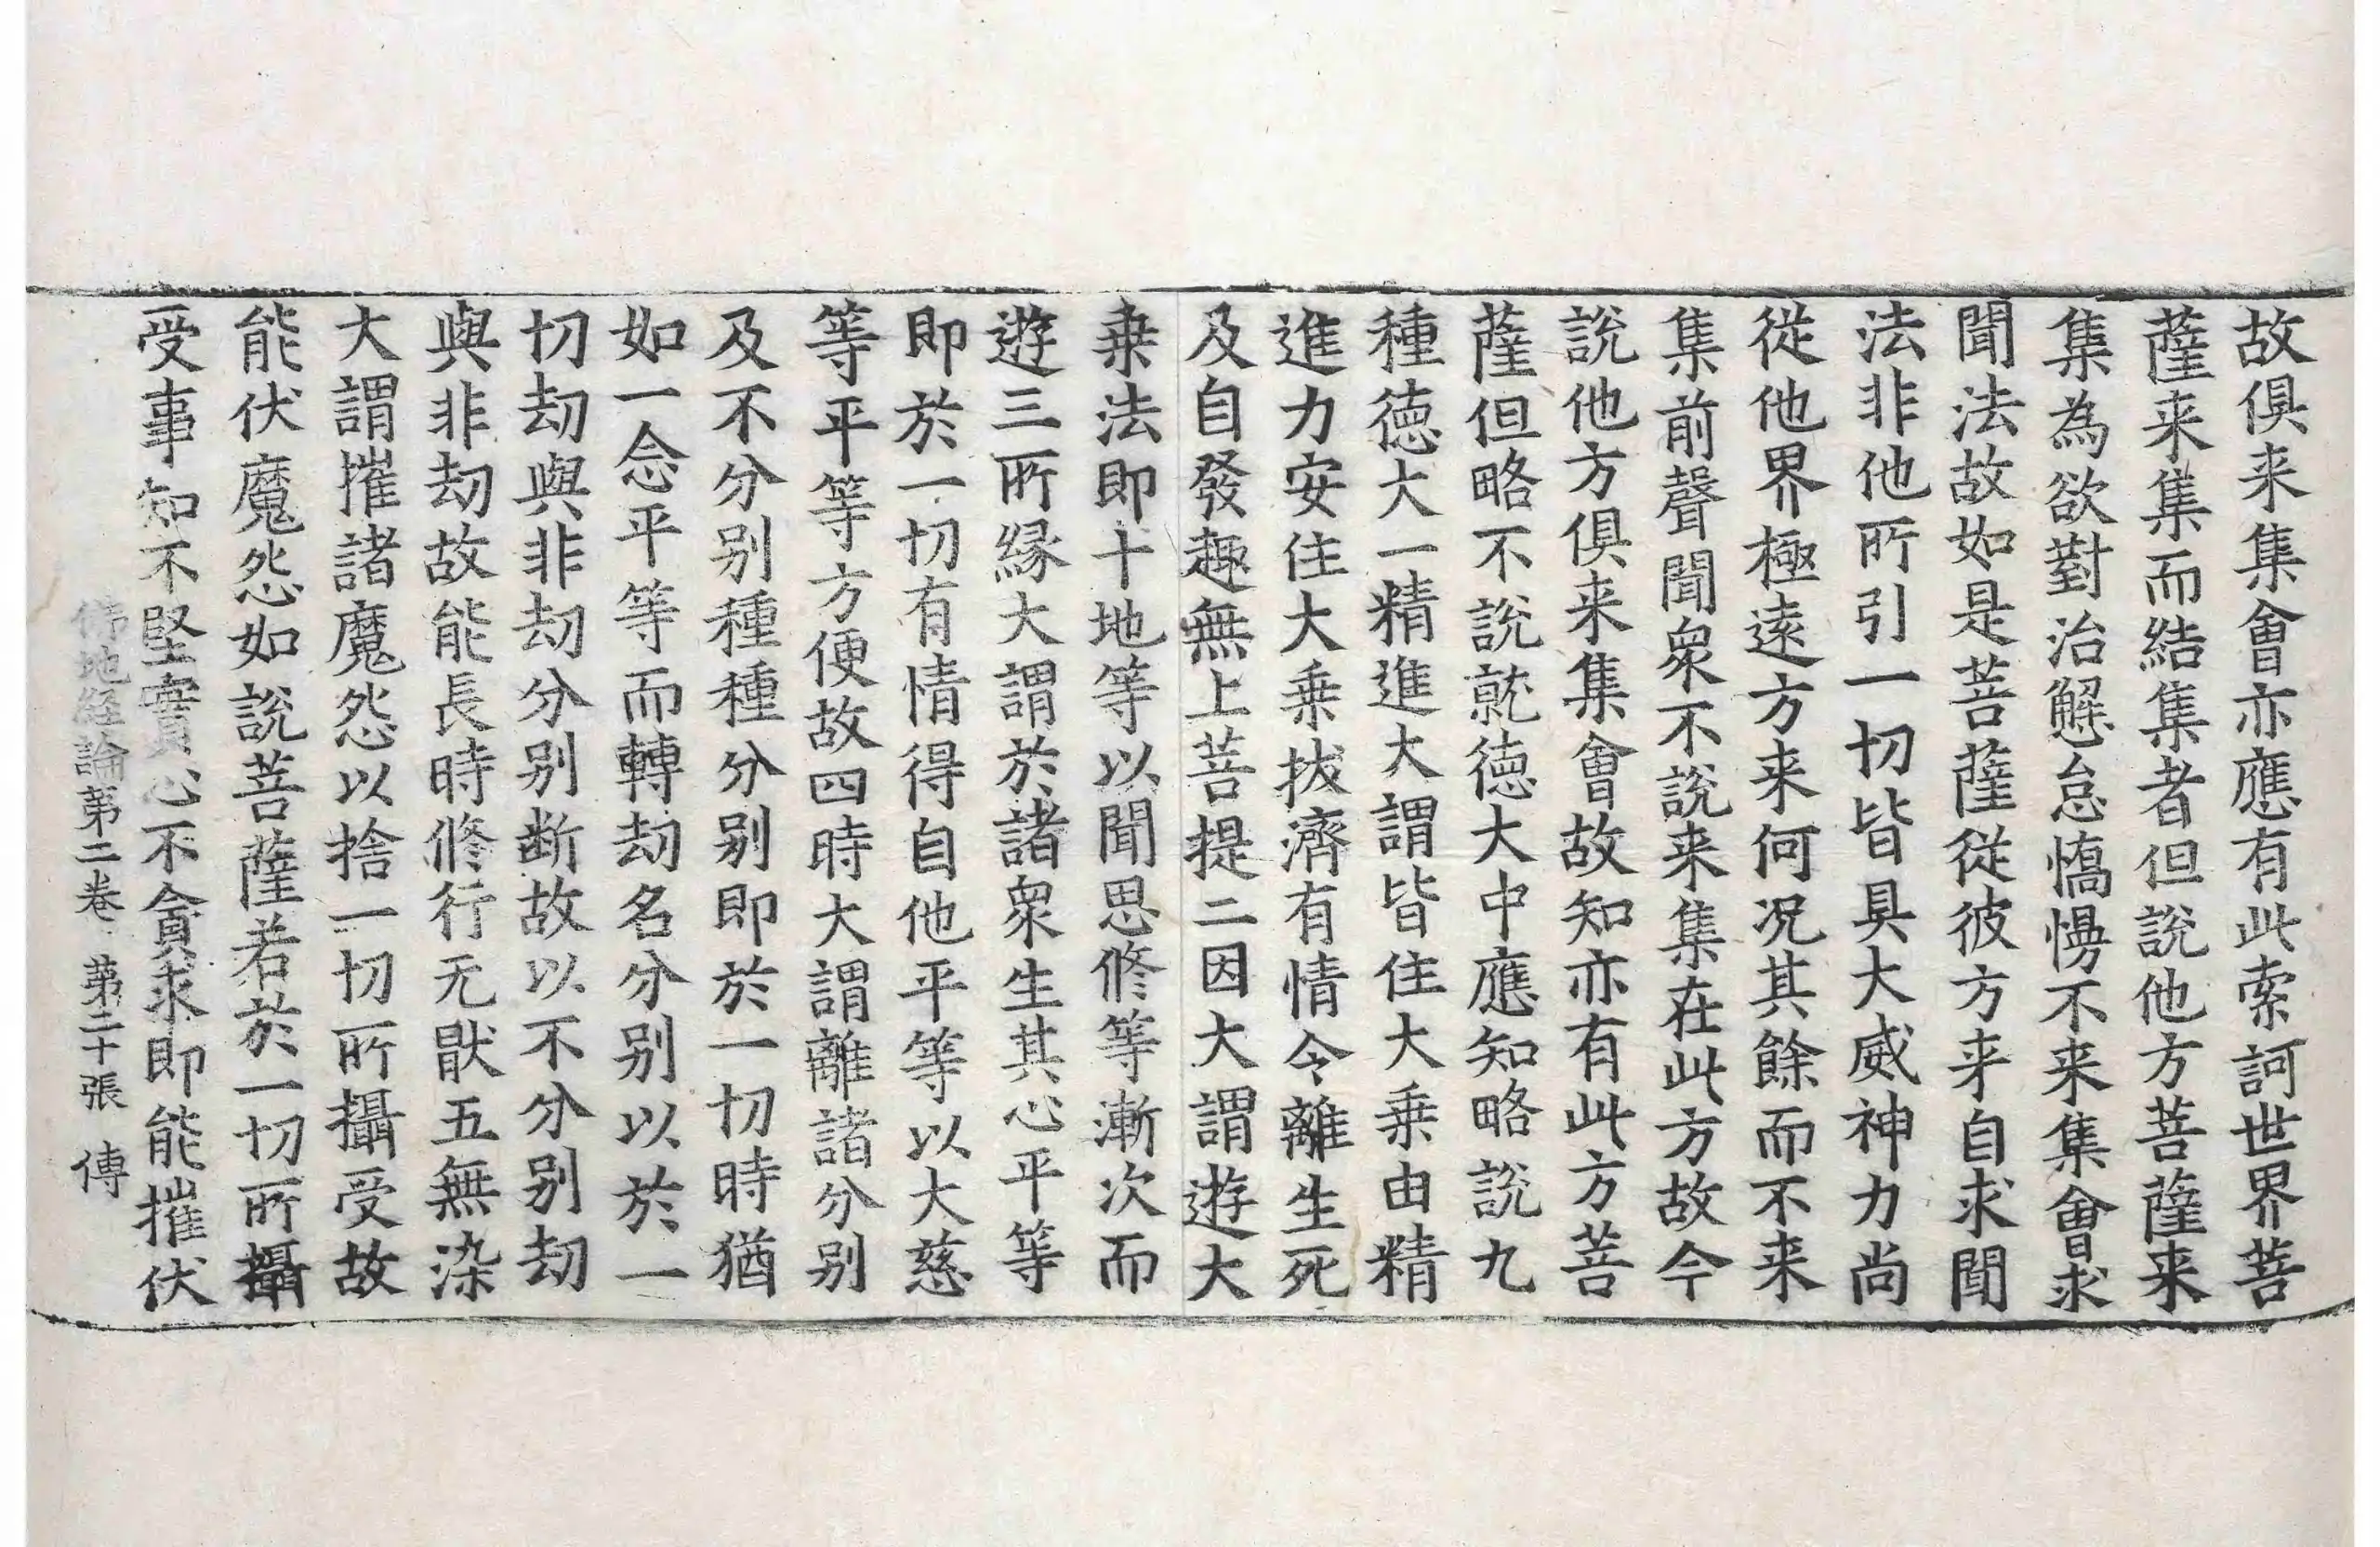 故俱来集會亦應有此索訶世界菩
薩来集而結集者但說他方菩薩来
集為欲對治懈怠憍慢不来集會求
聞法故如是菩薩從彼方来自求聞
法非他所引一切皆具大威神力尚
從他界極遠方来何況其餘而不来
集前聲聞衆不說来集在此方故今
說他方俱来集會故知亦有此方菩
薩但略不說就德大中應知略說九
種德大一精進大謂皆住大乗由精
進力安住大乗拔濟有情令離生死
及自發趣無上菩提二因大謂遊大
乗法即十地等以聞思修等漸次而
遊三所緣大謂於諸衆生其心平等
即於一切有情得自他平等以大慈
等平等方便故四時大謂離諸分別
及不分別種種分別即於一切時猶
如一念平等而轉劫名分別以於一
切劫與非劫分別断故以不分別劫
與非劫故能長時修行无猒五無染
大謂摧諸魔怨以捨一切所攝受故
能伏魔怨如說菩薩若於一切所攝
受事知不堅實心不貪求即能摧伏
佛地經論第二卷 第二十張 傳